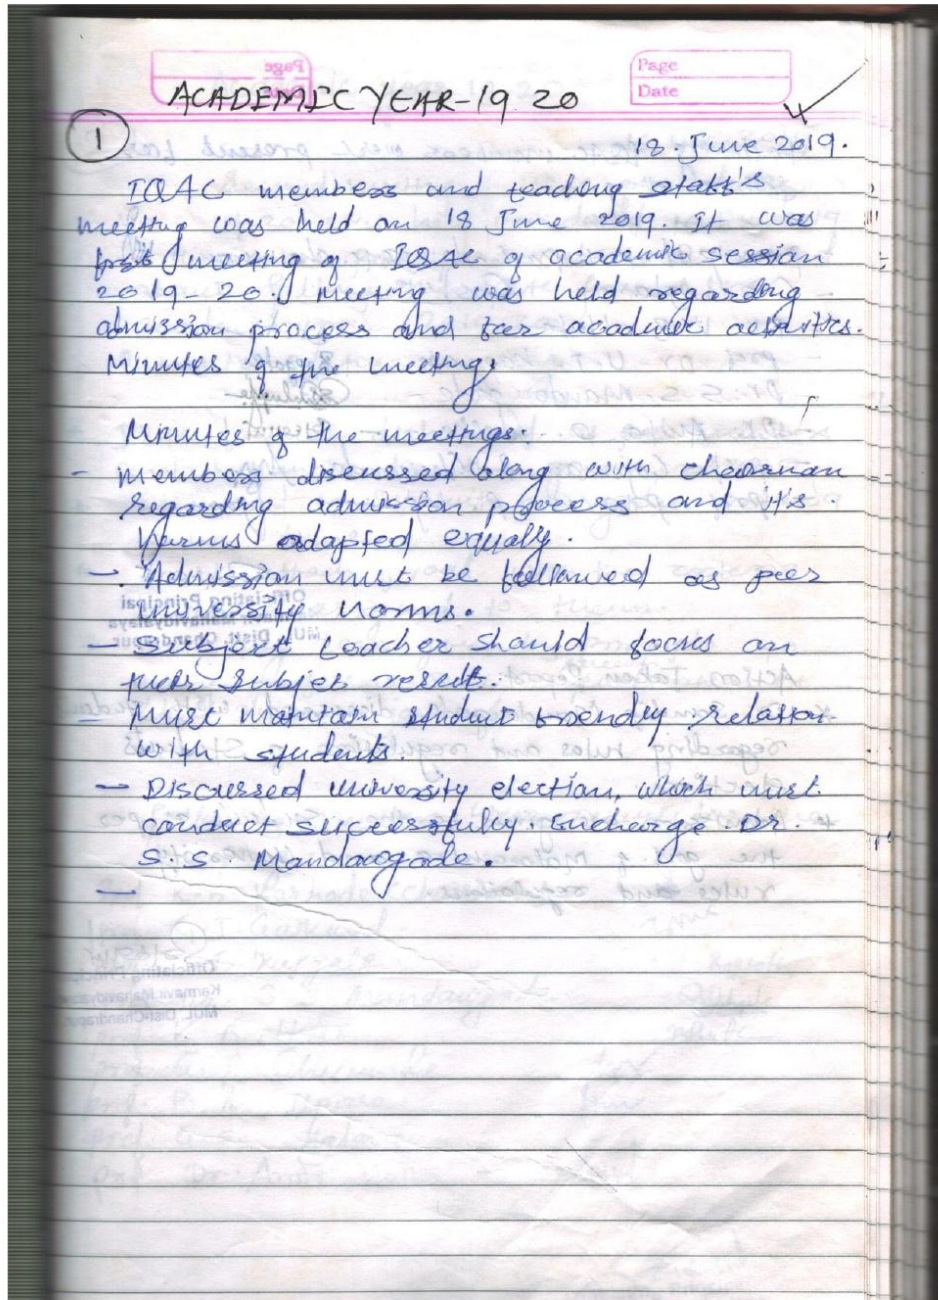 Page
Date
ACADEMIC YEAR-19 20
1
18 June 2019.
IQAC members and teaching staff's
meeting was held on 18 June 2019. It was
first meeting of IQAC of academic session
2019-20. Meeting was held regarding
admission process and academic activities.
Minutes of the meeting.
Minutes of the meetings.
- members discussed along with chairman
regarding admission process and it's
Norms adapted equally.
- Admission must be followed as per
University norms.
- Subject teacher should focus on
their subject result.
- Must maintain student friendly relation
with students.
- Discussed university election, which must
conduct successfully. Incharge Dr.
S.S. Mandavgade.
-